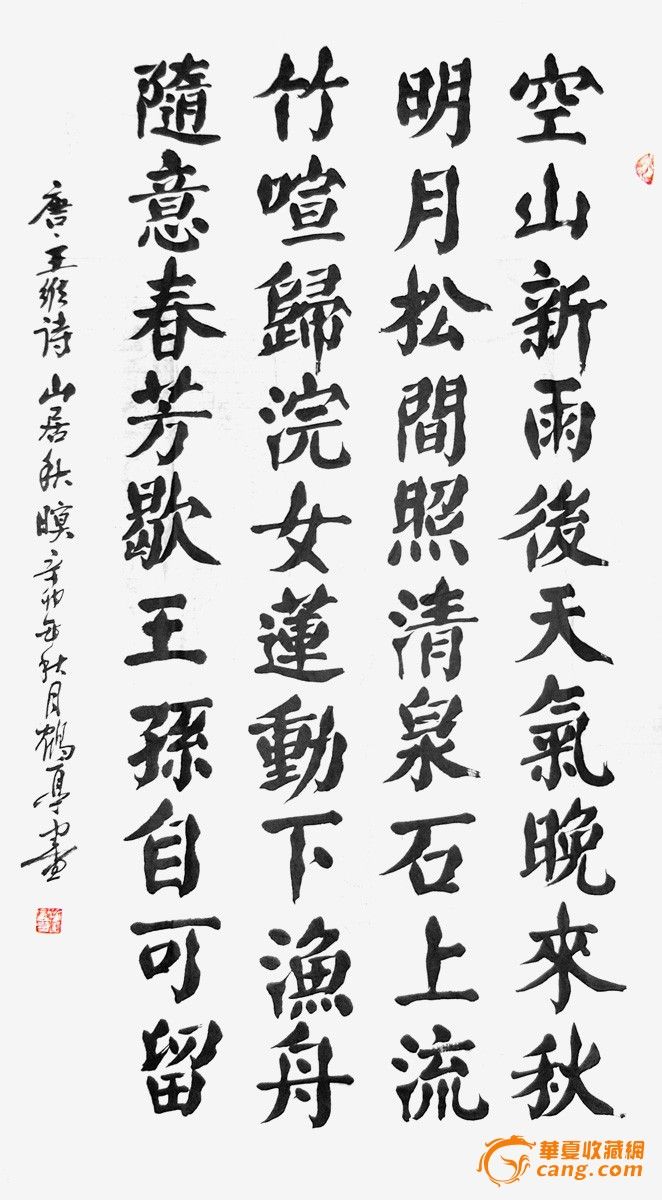 空山新雨後天氣晚來秋
明月松間照清泉石上流
竹喧歸浣女蓮動下漁舟
隨意春芳歇王孫自可留
唐·王维诗 山居秋暝 辛卯年秋月鶴亭書
華夏收藏網
cang.com